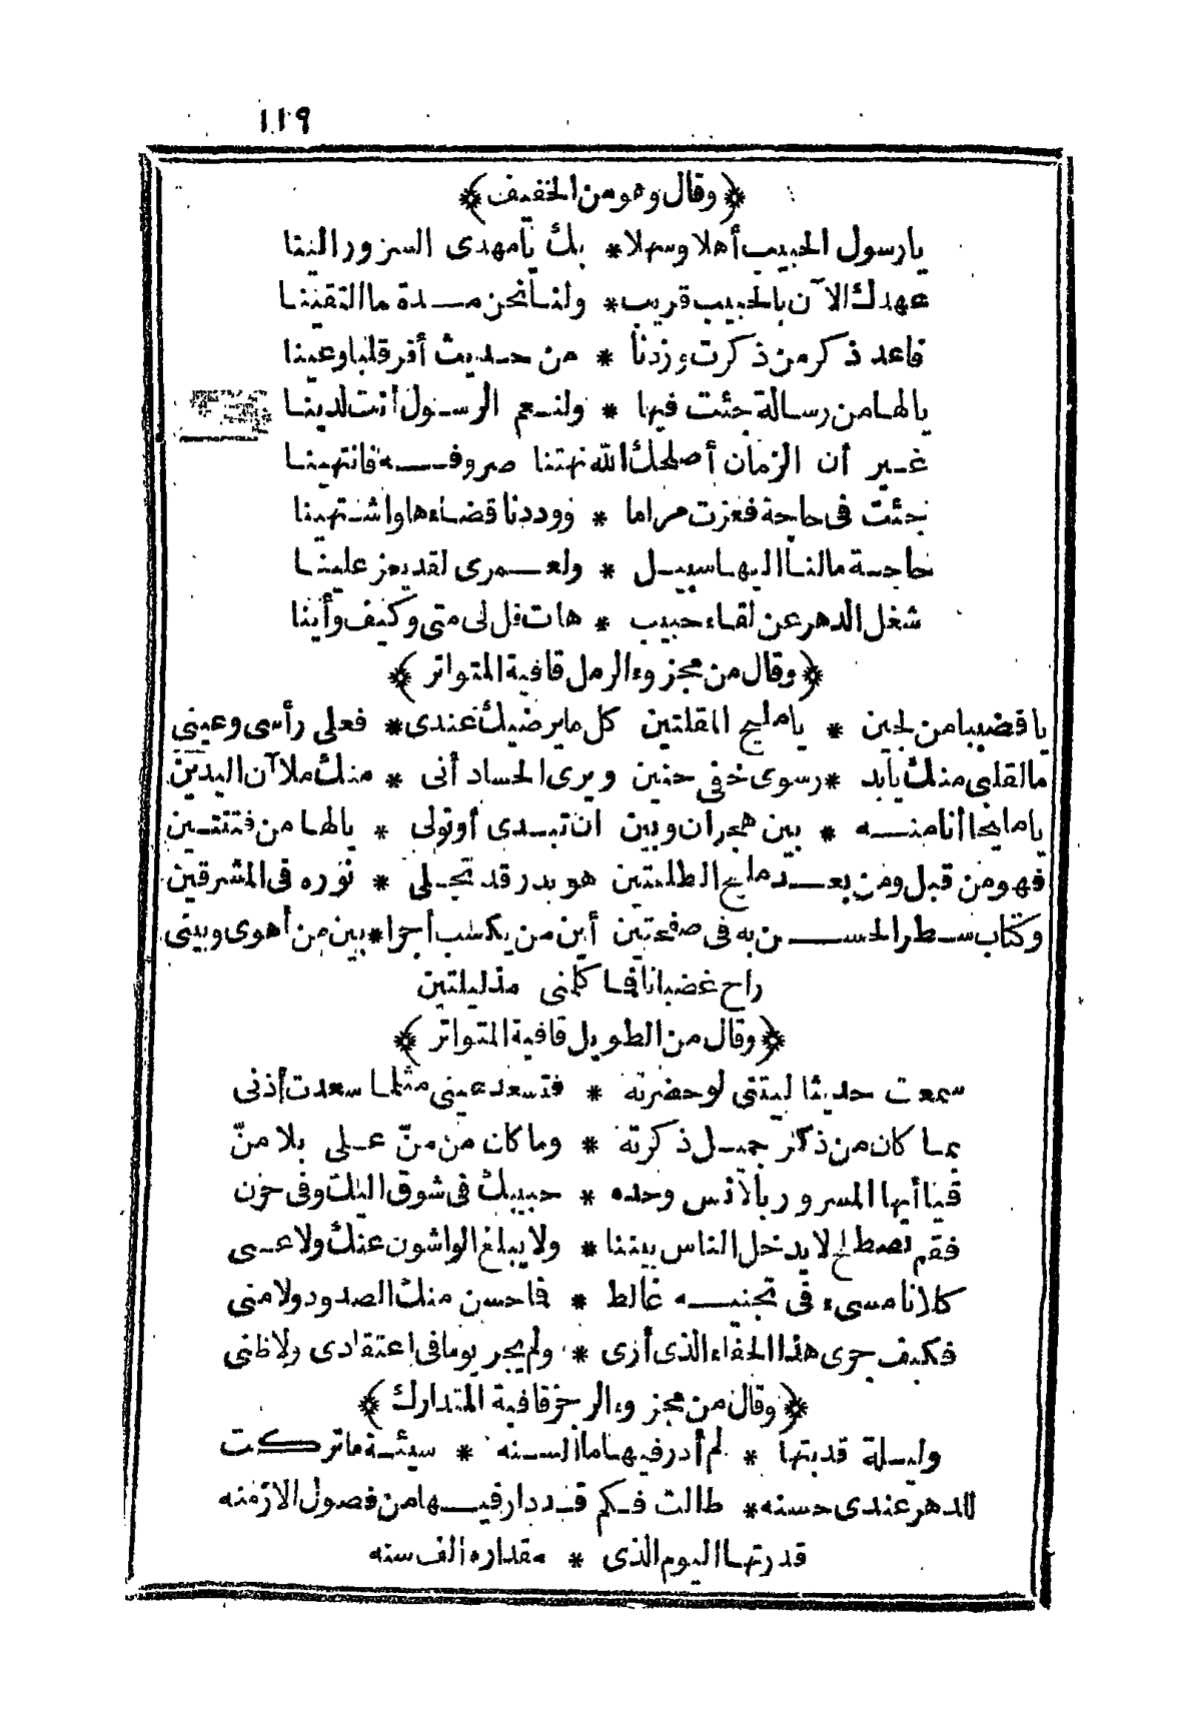 ١١٩
﴿وقال وهو من الخفيف﴾
يا رسول الحبيب أهلا وسهلا * بك يا مهدى السرور الينا
عهدك الآن بالحبيب قريب * ولنا نحن مدة ما التقينا
فاعد ذكر من ذكرت وزدنا * من حديث أقر قلبا وعينا
يا لها من رسالة جئت فيها * ولنعم الرسول أنت لدينا
غير أن الزمان أصلحك الله نهتنا صروفه فانتهينا
جئت فى حاجة فعزت مراما * ووددنا قضاءها واشتهينا
حاجة ما لنا اليها سبيل * ولعمرى لقد يعز علينا
شغل الدهر عن لقاء حبيب * هات قل لى متى وكيف وأينا
﴿وقال من مجزوء الرمل قافية المتواتر﴾
يا قضيبا من لجين * يا مليح المقلتين كل ما يرضيك عندى * فعلى رأسى وعينى
ما لقلبى منك يا بد * ر سوى خفى حنين ويرى الحساد أنى * منك ملآن اليدين
يا مليحا أنا منه * بين هجران وبين ان تبدى أو تولى * يا لها من فتنتين
فهو من قبل ومن بعد مليح الطلعتين هو بدر قد تجلى * نوره فى المشرقين
وكتاب سطر الحسن به فى صفحتين أين من يكسب أجرا * بين من أهوى وبينى
راح غضبانا فما كلمنى مذ ليلتين
﴿وقال من الطويل قافية المتواتر﴾
سمعت حديثا ليتنى لو حضرته * فتسعد عينى مثلما سعدت أذنى
بما كان من ذكر جميل ذكرته * وما كان من منّ على بلا منّ
فيا أيها المسرور بالانس وحده * حبيبك فى شوق اليك وفى حزن
فقم نصطلح لا يدخل الناس بيننا * ولا يبلغ الواشون عنك ولا عنى
كلانا مسىء فى تجنيه غالط * فاحسن منك الصدود ولا منى
فكيف جرى هذا الجفاء الذى أرى * ولم يجر يوما فى اعتقادى ولا ظنى
﴿وقال من مجزوء الرجز قافية المتدارك﴾
وليلة قد بتها * لم أدر فيها ما السنه * سيئة ما تركت
للدهر عندى حسنه * طالت فكم قد دار فيها من فصول الازمنه
قدرتها اليوم الذى * مقداره ألف سنه